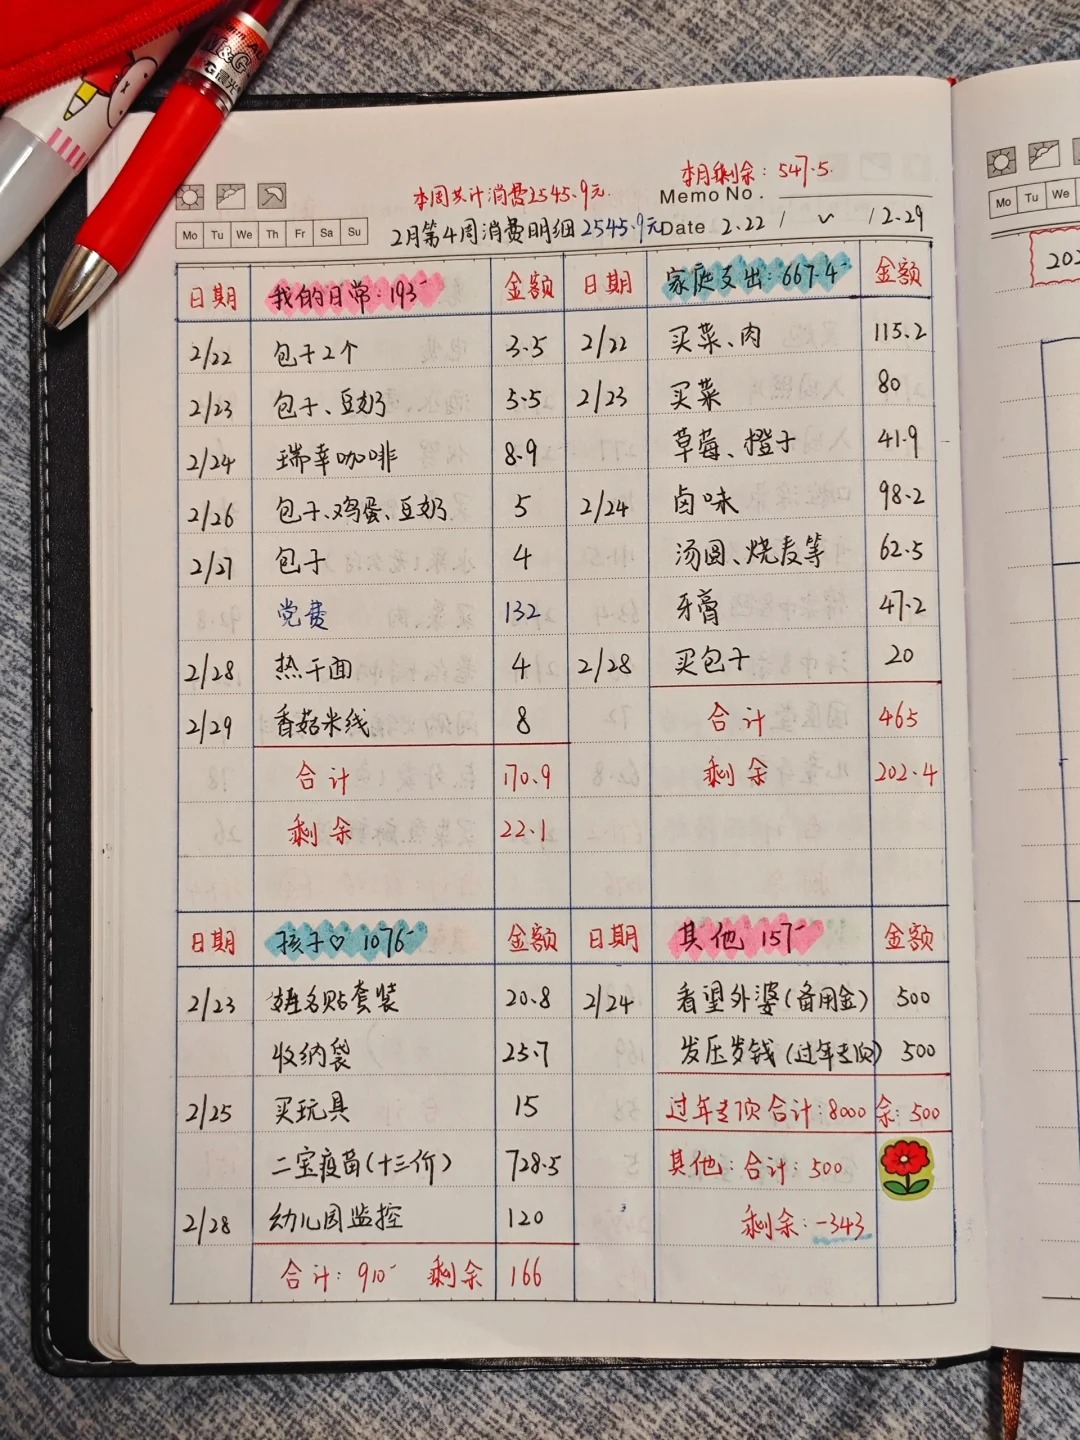 M&G
晨光
本周共计消费2545.9元
本月剩余：547.5
Memo No.
Mo Tu We Th Fr Sa Su
2月第4周消费明细2545.9元
Date 2.22 / ~ / 2.29
Mo Tu We
日期 我的日常：193 金额 日期 家庭支出：667.4 金额
2/22 包子2个 3.5 2/22 买菜、肉 115.2
2/23 包子、豆奶 5.5 2/23 买菜 80
2/24 瑞幸咖啡 8.9 草莓、橙子 41.9
2/26 包子、鸡蛋、豆奶 5 2/24 卤味 98.2
2/27 包子 4 汤圆、烧麦等 62.5
党费 132 牙膏 47.2
2/28 热干面 4 2/28 买包子 20
2/29 香菇米线 8 合计 465
合计 170.9 剩余 202.4
剩余 22.1
日期 孩子♡ 1076 金额 日期 其他 157 金额
2/23 姓名贴套装 20.8 2/24 看望外婆(备用金) 500
收纳袋 25.7 发压岁钱(过年专项) 500
2/25 买玩具 15 过年专项合计：8000 余：500
二宝疫苗(十三价) 728.5 其他：合计：500
2/28 幼儿园监控 120 剩余：-343
合计：910 剩余 166
202